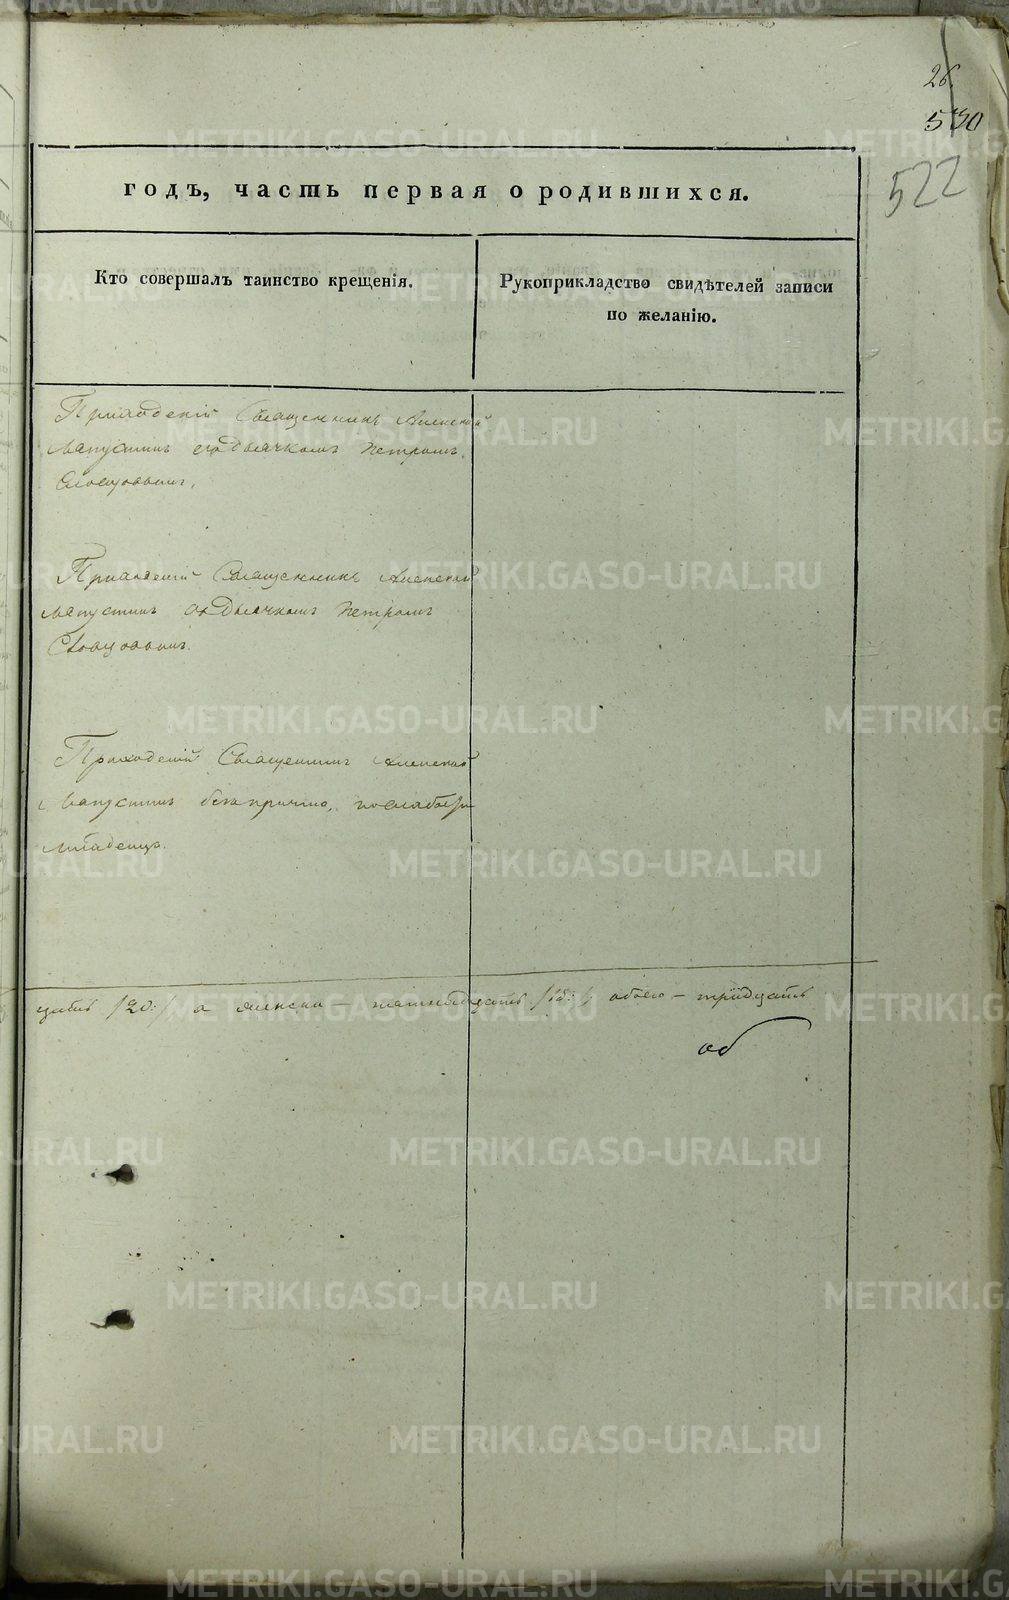 26.
530
522
годъ, часть первая о родившихся.
Кто совершалъ таинство крещенія.
Рукоприкладство свидѣтелей записи
по желанію.
Приходскій Священникъ Алексѣй
Лапустинъ съ дьячкомъ Петромъ
Приходскій Священникъ Алексѣй
Лапустинъ съ дьячкомъ Петромъ
Приходскій Священникъ Алексѣй
Лапустинъ безъ причта, по слабости
младенца.
цать /20:/ а женска – пятнадцать /15:/, обоего – тридцать
METRIKI.GASO-URAL.RU